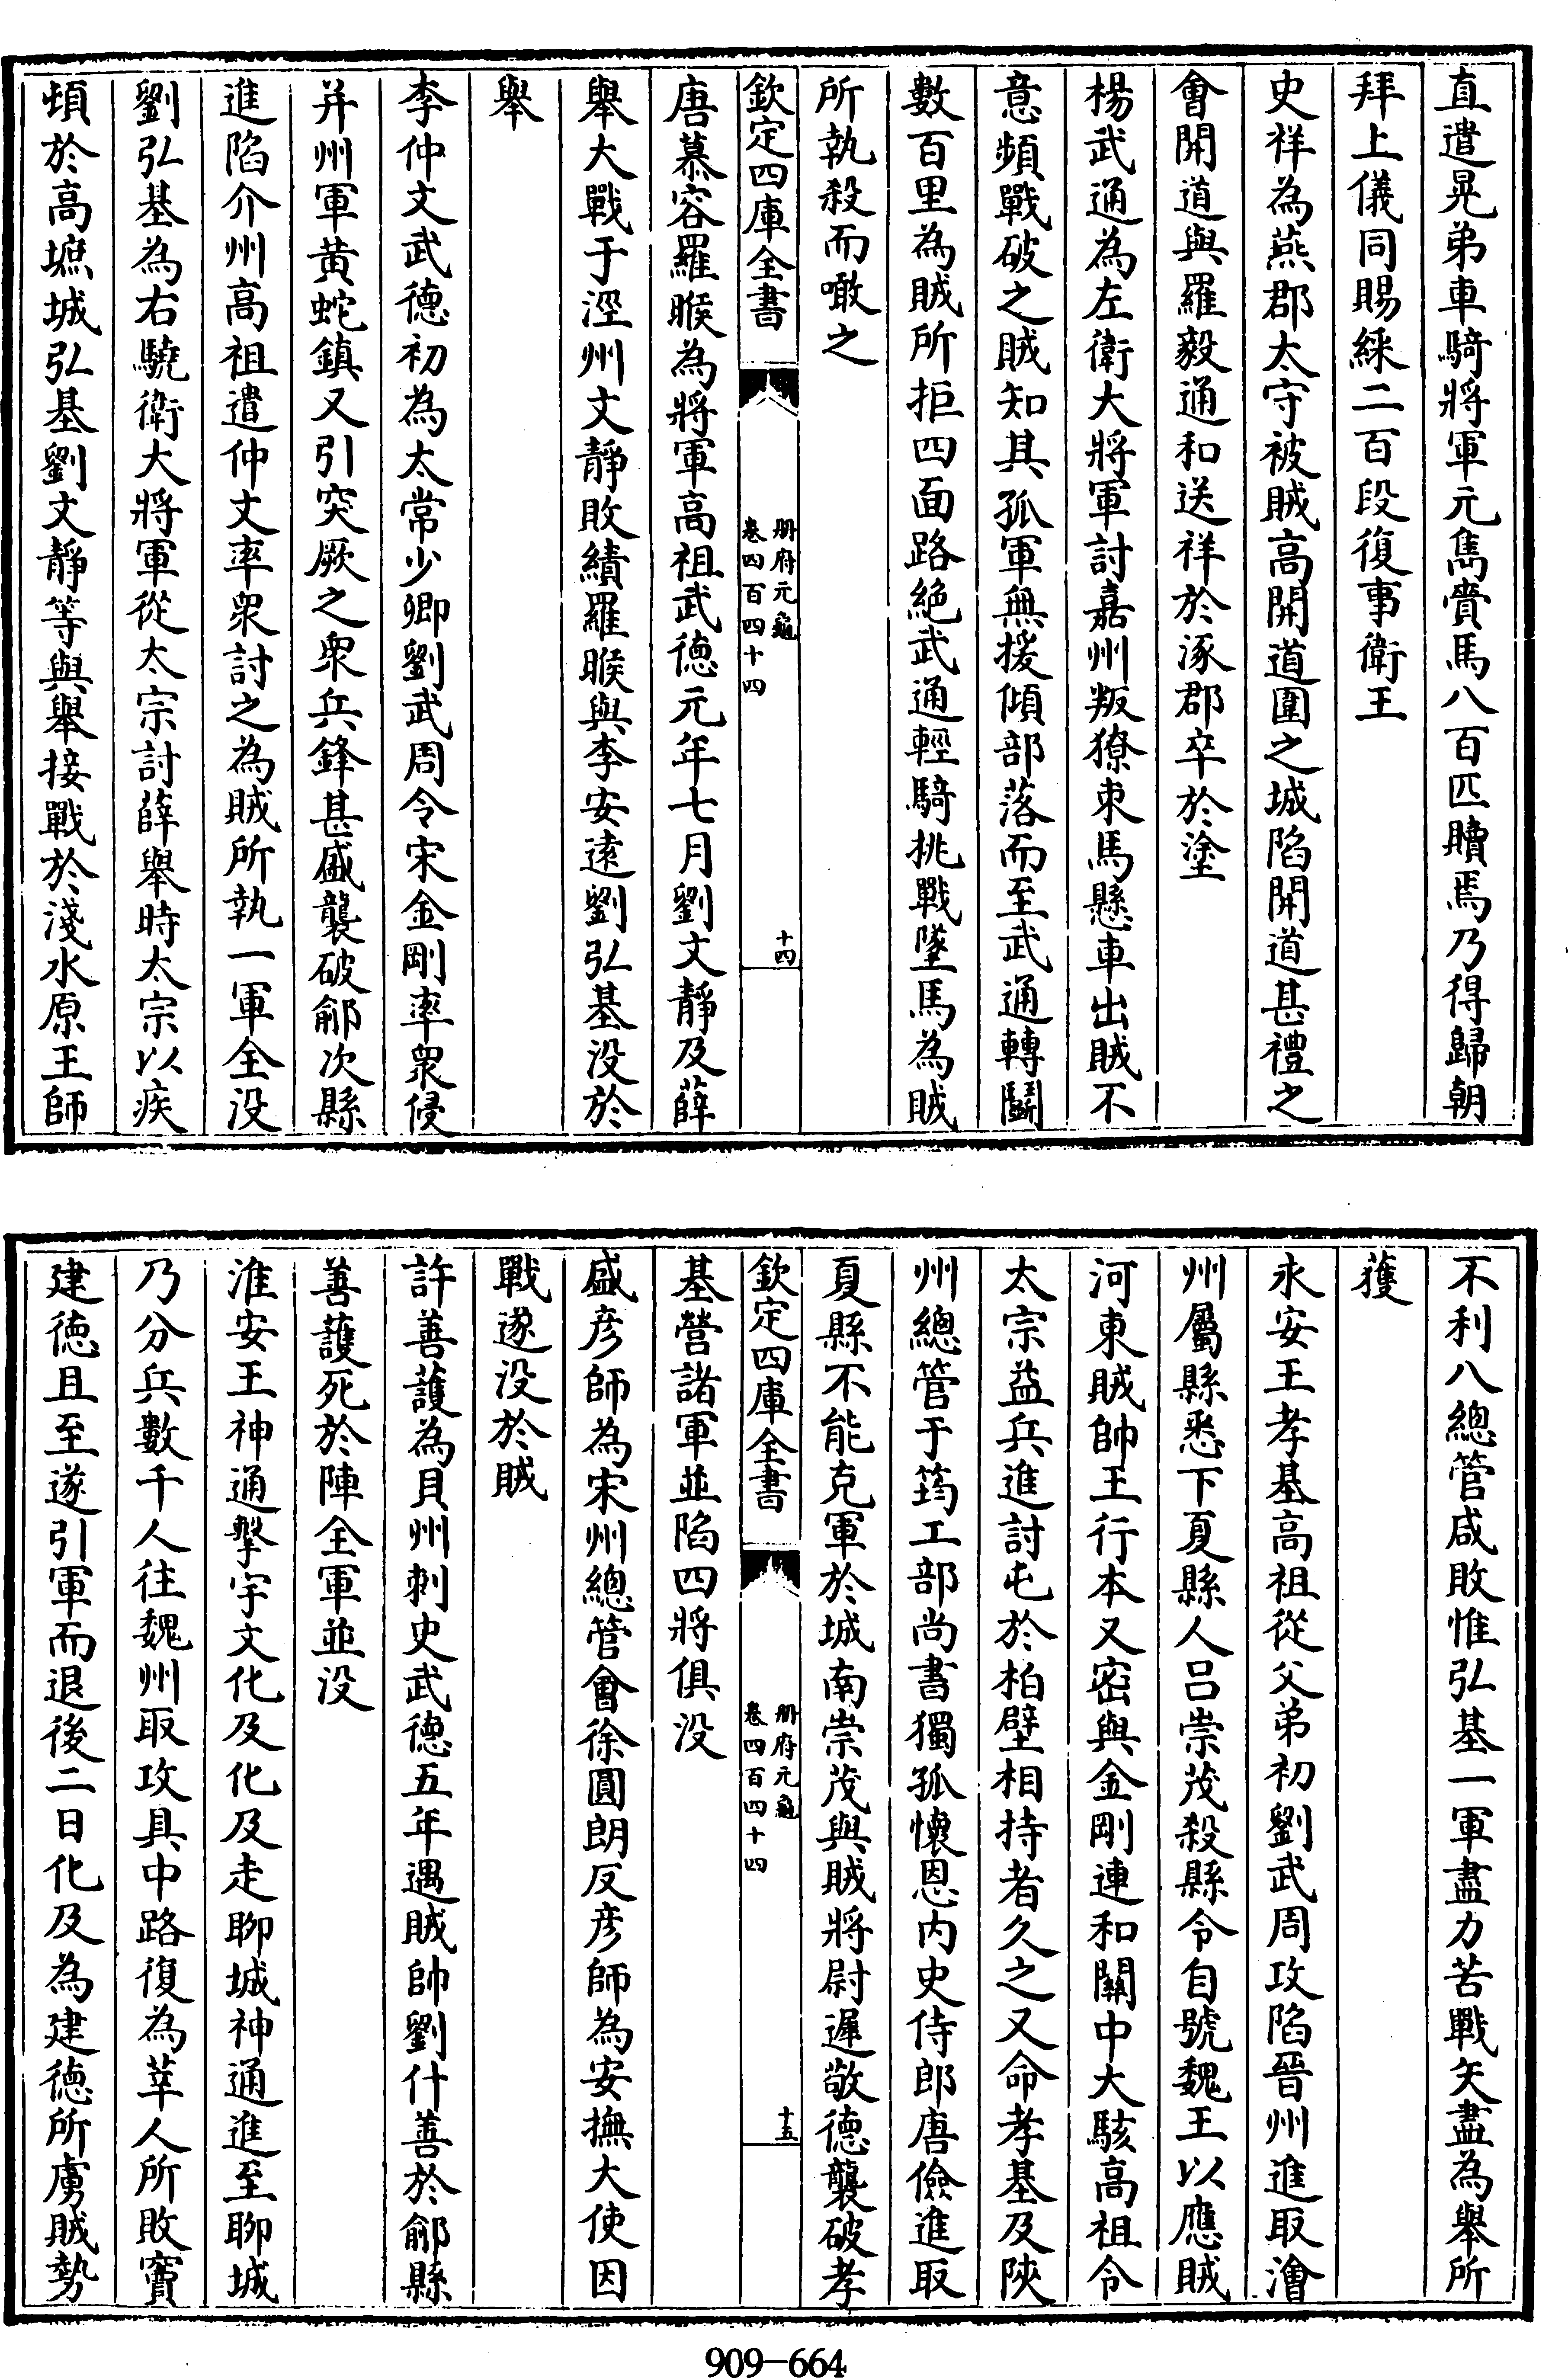 直遣晃弟車騎將軍元儁賫馬八百匹贖焉乃得歸朝
拜上儀同賜綵二百段復事衛王
史祥為燕郡太守被賊高開道圍之城陷開道甚禮之
會開道與羅毅通和送祥於涿郡卒於塗
楊武通為左衛大將軍討嘉州叛獠束馬懸車出賊不
意頻戰破之賊知其孤軍無援傾部落而至武通轉鬭
數百里為賊所拒四面路絶武通輕騎挑戰墜馬為賊
所執殺而噉之
欽定四庫全書
册府元龜
卷四百四十四
十四
唐慕容羅睺為將軍高祖武德元年七月劉文靜及薛
舉大戰于涇州文靜敗績羅睺與李安遠劉弘基没於
舉
李仲文武德初為太常少卿劉武周令宋金剛率衆侵
并州軍黄蛇鎮又引突厥之衆兵鋒甚盛襲破鄃次縣
進陷介州高祖遣仲文率衆討之為賊所執一軍全没
劉弘基為右驍衛大將軍從太宗討薛舉時太宗以疾
頓於高墌城弘基劉文靜等與舉接戰於淺水原王師
不利八總管咸敗惟弘基一軍盡力苦戰矢盡為舉所
獲
永安王孝基高祖從父弟初劉武周攻陷晉州進取澮
州屬縣悉下夏縣人吕崇茂殺縣令自號魏王以應賊
河東賊帥王行本又密與金剛連和關中大駭高祖令
太宗益兵進討屯於柏壁相持者久之又命孝基及陜
州總管于筠工部尚書獨孤懷恩内史侍郎唐儉進取
夏縣不能克軍於城南崇茂與賊將尉遲敬德襲破孝
欽定四庫全書
册府元龜
卷四百四十四
十五
基營諸軍並陷四將俱没
盛彦師為宋州總管會徐圓朗反彦師為安撫大使因
戰遂没於賊
許善護為貝州刺史武德五年遇賊帥劉什善於鄃縣
善護死於陣全軍並没
淮安王神通擊宇文化及化及走聊城神通進至聊城
乃分兵數千人往魏州取攻具中路復為莘人所敗竇
建德且至遂引軍而退後二日化及為建德所虜賊勢
909—664